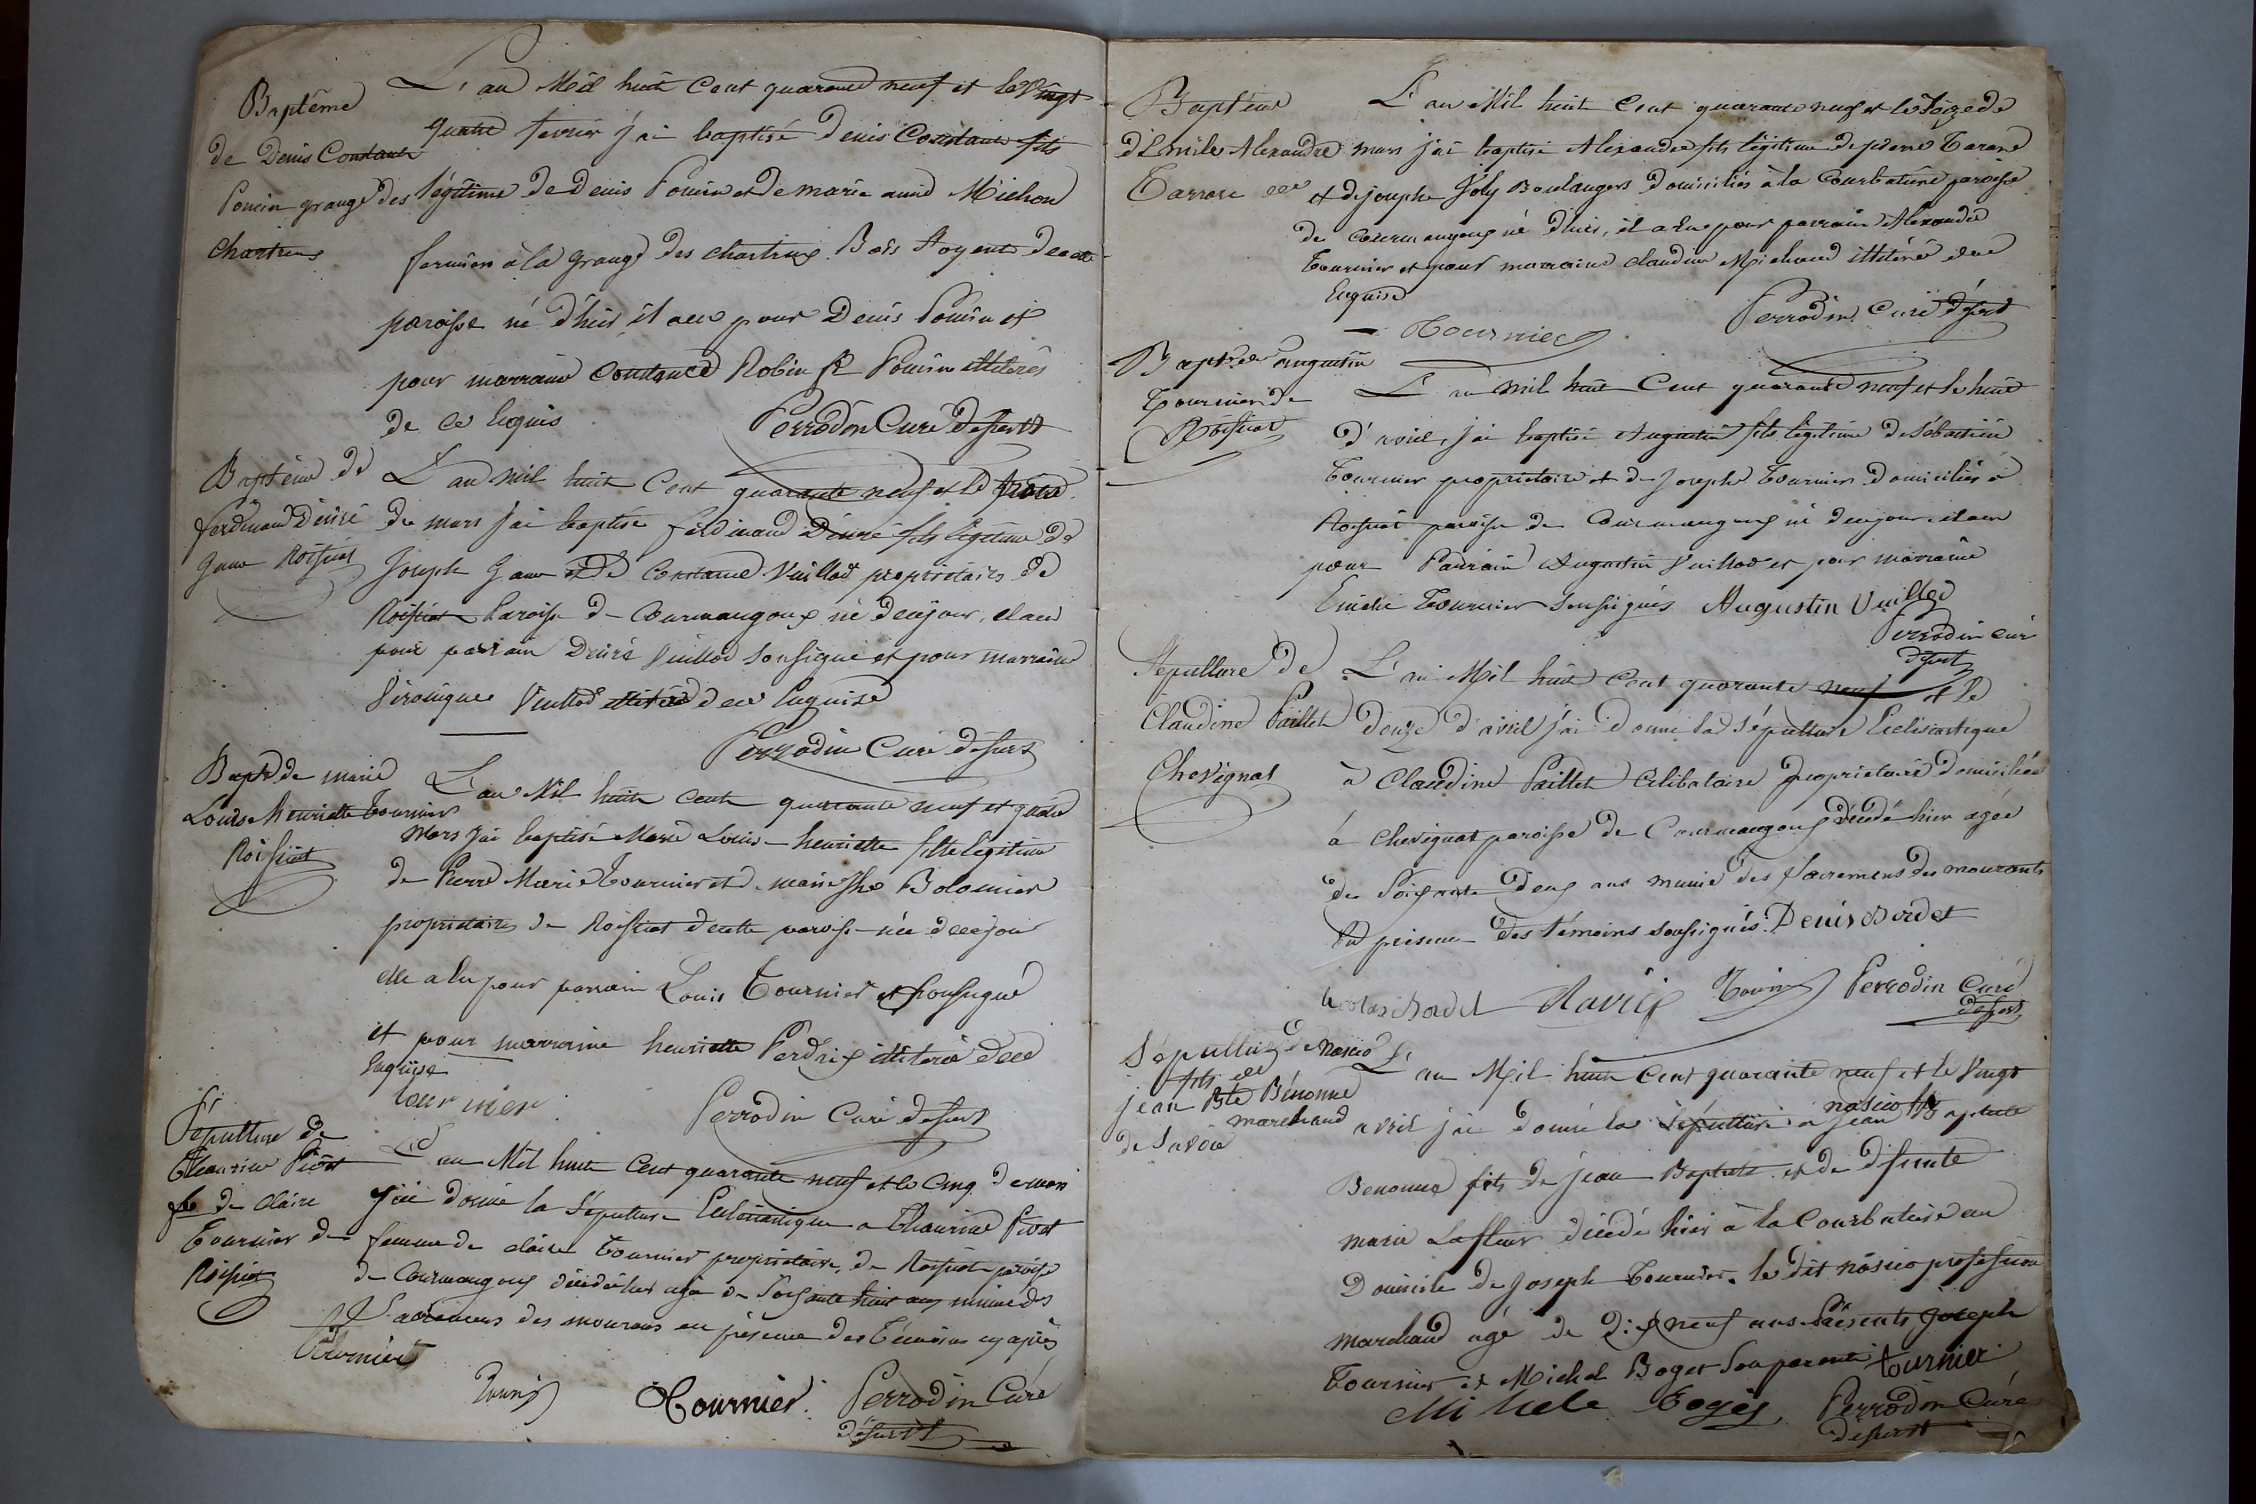 Baptême
de Denis Constant
Poncin grange des
chartreux
L'an Mil huit Cent quarante neuf et le Vingt
quatre fevrier j'ai baptisé Denis Constant fils
légitime de Denis Poncin et de marie Michon
fermier à la grange des chartreux Bois
paroisse né d'hier il a eu pour Denis Poncin et
pour marraine Constance Robin Poncin illiterés
de ce Requis
Perrodin Curé desservt
Baptême de
ferdinand Désiré
Roissiat
L'an mil huit Cent quarante neuf et le
de mars j'ai baptisé ferdinand Désiré fils légitime de
Joseph et de Constance Vuillod propriétaires de
Roissiat Paroisse de Courmangoux né de ce jour, il a eu
pour parrain Désiré Vuillod Soussigné et pour marraine
Véronique Vuillod illitérée de ce Requise
Perrodin Curé desservt
Bapt. de marie
Louise henriette Tournier
Roissiat
L'an Mil huit cent quarante neuf et quatre
Mars j'ai baptisé Marie Louise henriette fille légitime
de Pierre Marie Tournier et de marie Bolomier
propriétaires de Roissiat de cette paroisse née de ce jour
elle a eu pour parrain Louis Tournier soussigné
et pour marraine henriette Perdrix illiterée de ce
Requise
tournier
Perrodin Curé desservt
Sépulture de
Thaurine Pivot
fe de claire
Tournier de
Roissiat
L'an Mil huit Cent quarante neuf et le cinq de mars
j'ai donné la Sépulture Ecclésiastique a Thaurine Pivot
femme de claire Tournier propriétaire, de Roissiat paroisse
de Courmangoux décédée hier agée de Soixante huit ans munie des
Sacremens des mourans en présence des Témoins cy après
Tournier
Tournier Perrodin Curé
desservt
Baptême
d'Emile Alexandre
Tarare
L'an Mil huit Cent quarante neuf et le Seize de
mars j'ai baptisé Alexandre fils légitime de pierre Tarare
et de josephe Joly Boulangers Domiciliés à la Courbatière paroisse
de Courmangoux né d'hier, il a eu pour parrain Alexandre
Tournier et pour marraine claudine Michaud illitérée de ce
Requise
Tournier
Perrodin Curé desservt
Bapt. de augustin
Tournier de
Roissiat
L'an mil huit Cent quarante neuf et le huit
d'avril, j'ai baptisé Augustin fils légitime de Sébastien
Tournier propriétaire et de Josephe Tournier Domiciliés à
Roissiat paroisse de Courmangoux né de ce jour il a eu
pour Parrain Augustin Vuillod et pour marraine
Tournier Soussignés Augustin Vuillod
Perrodin curé
desservt
Sépulture de
Claudine Paillet
Chevignat
L'an Mil huit Cent quarante neuf et le
Douze d'avril j'ai donné la Sépulture Eclésiastique
à Claudine Paillet Célibataire propriétaire Domiciliée
à Chevignat paroisse de Courmangoux décédée hier agée
de Soixante Deux ans munie des Sacremens des mourants
En présence des témoins soussignés. Denis Bordet
nicolas Bordet Ravier Perrodin Curé
desservt
Sépulture de nosico
fils de
jean Bte Bénonne
marchand
de Savoie
L'an Mil huit Cent quarante neuf et le Vingt
avril j'ai donné la Sépulture a jean nosico Baptiste
Benonne fils de jean Baptiste et de défunte
marie Lafleur décédé hier à la Courbatiere au
Domicile de Joseph Tournier. le dit nosico profession
marchand agé de Dix neuf ans Présents joseph
Tournier et Michel Boget Son parent tournier
Michele Bogey Perrodin Curé
desservt